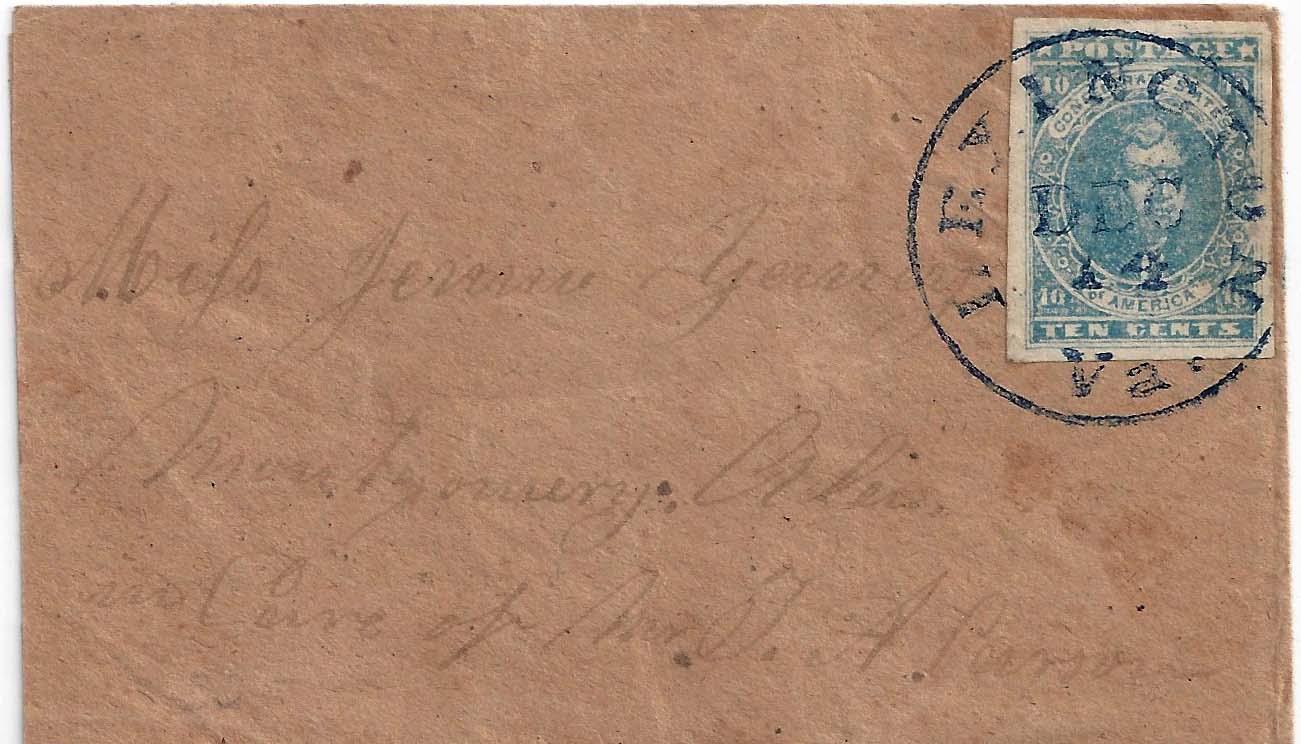 POSTAGE
10 10
CONFEDERATE STATES
OF AMERICA
10 10
TEN CENTS
LEXINGTON
DEC
14
Va.
Miss Jennie
Montgomery. Ala.
Care of Mr.